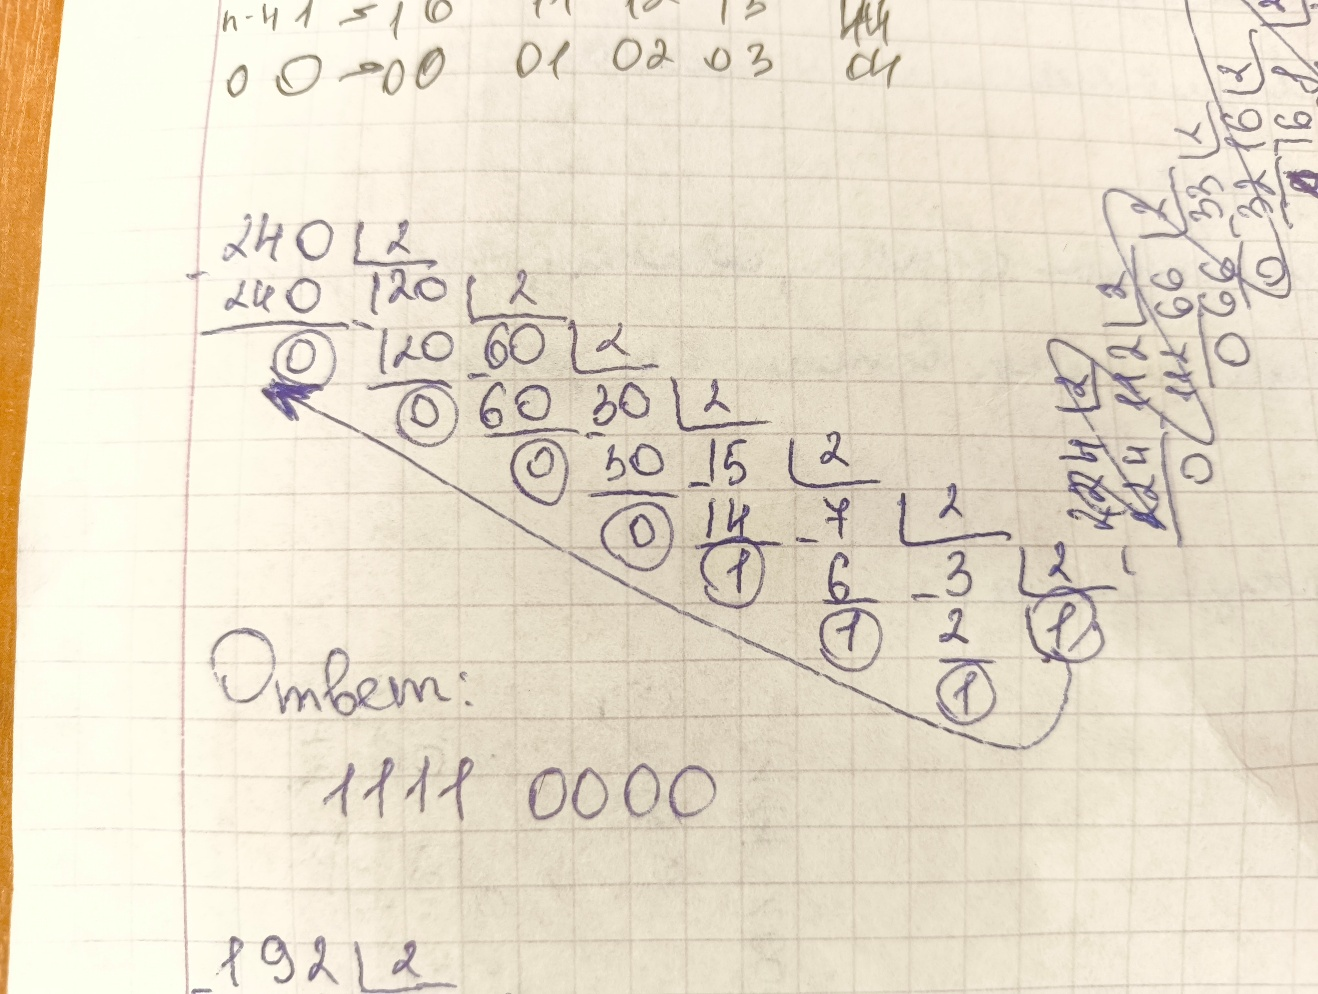 0 0 → 00 01 02 03 04
240 2
- 240 120 2
0 - 120 60 2
0 - 60 30 2
0 - 30 15 2
0 - 14 7 2
1 - 6 3 2
1 - 2 1
1
Ответ:
1111 0000
- 192 2
224 2
224 112 2
0 112 66 2
0 66 33 2
0 32 16 2
0 16 8